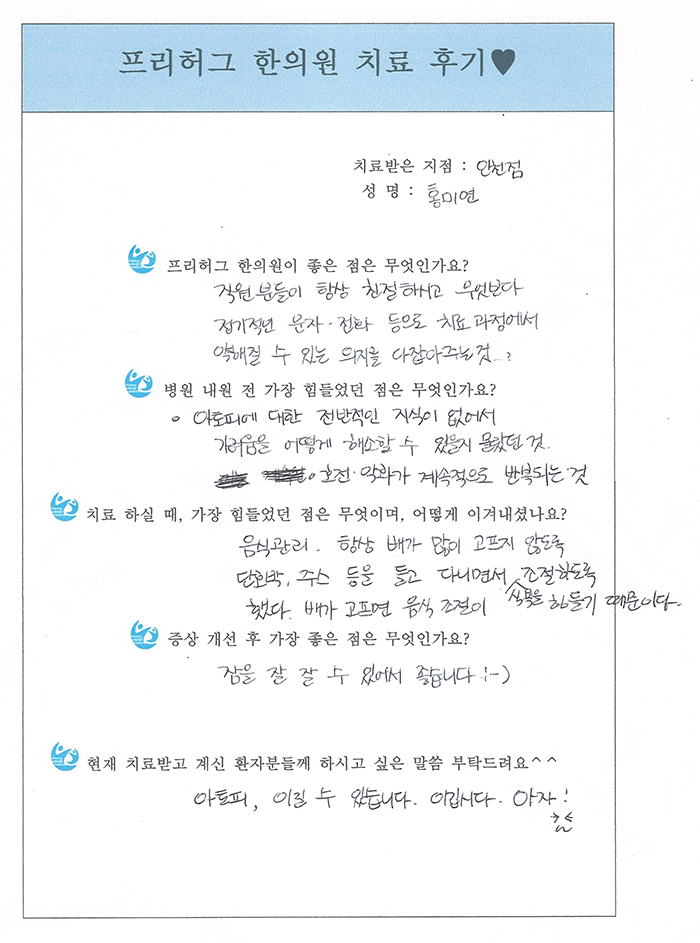 프리허그 한의원 치료 후기♥
치료받은 지점 : 인천점
성 명 : 홍미연
프리허그 한의원이 좋은 점은 무엇인가요?
직원분들이 항상 친절하시고 무엇보다
정기적인 문자·전화 등으로 치료과정에서
약해질 수 있는 의지를 다잡아주는것...?
병원 내원 전 가장 힘들었던 점은 무엇인가요?
o 아토피에 대한 전반적인 지식이 없어서
가려움을 어떻게 해소할 수 있을지 몰랐던 것.
o 호전·악화가 계속적으로 반복되는 것
치료 하실 때, 가장 힘들었던 점은 무엇이며, 어떻게 이겨내셨나요?
음식관리. 항상 배가 많이 고프지 않도록
단호박, 주스 등을 들고 다니면서 식욕을 조절하도록
했다. 배가 고프면 음식 조절이 힘들기 때문이다.
증상 개선 후 가장 좋은 점은 무엇인가요?
잠을 잘 잘 수 있어서 좋습니다 :-)
현재 치료받고 계신 환자분들께 하시고 싶은 말씀 부탁드려요^^
아토피, 이길 수 있습니다. 이깁시다. 아자!